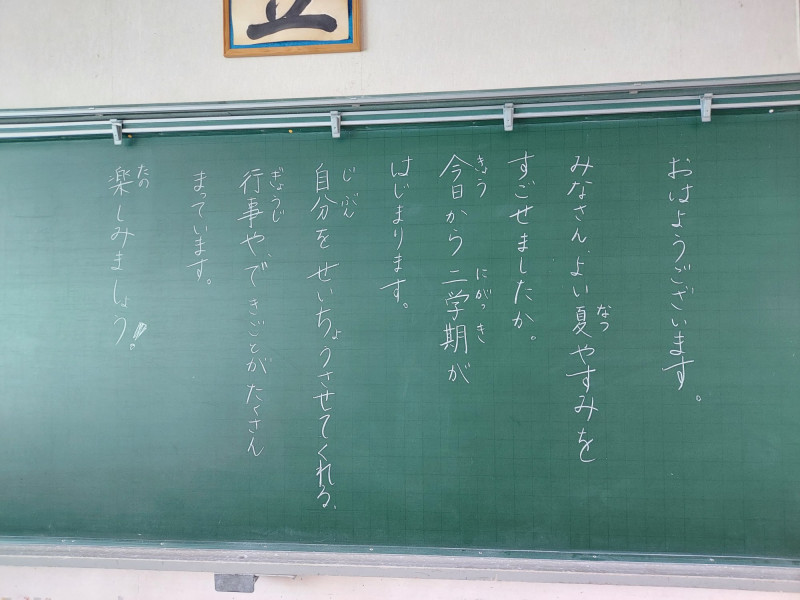 おはようございます。
みなさん、よい夏やすみを
なつ
すごせましたか。
今日から二学期が
きょう
にがっき
はじまります。
自分を せいちょうさせてくれる、
じぶん
行事や、できごとが たくさん
ぎょうじ
まっています。
楽しみましょう!
たの